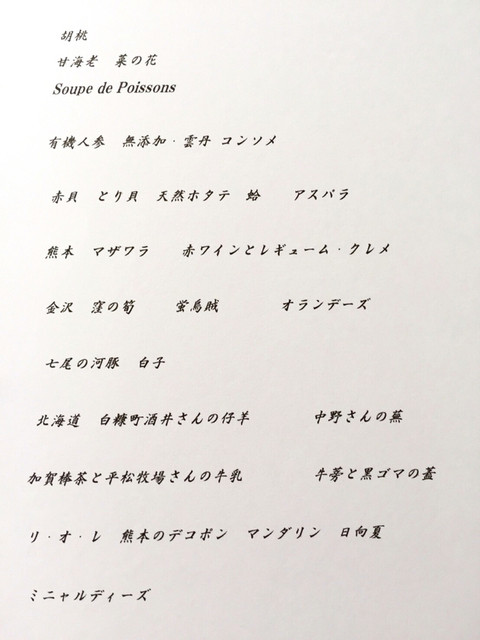 胡桃
甘海老 菜の花
Soupe de Poissons
有機人参 無添加・雲丹 コンソメ
赤貝 とり貝 天然ホタテ 蛤 アスパラ
熊本 マザワラ 赤ワインとレギューム・クレメ
金沢 窪の筍 蛍烏賊 オランデーズ
七尾の河豚 白子
北海道 白糠町酒井さんの仔羊 中野さんの蕪
加賀棒茶と平松牧場さんの牛乳 牛蒡と黒ゴマの蓋
リ・オ・レ 熊本のデコポン マンダリン 日向夏
ミニャルディーズ